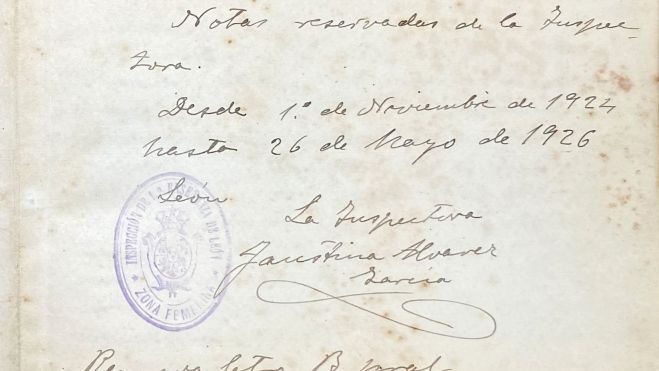 Notas reservadas de la Inspec-
tora.
Desde 1.º de Noviembre de 1924
hasta 26 de Mayo de 1926
León
La Inspectora
Faustina Alvarez
García
INSPECCIÓN DE LA ENSEÑANZA DE LEÓN
* ZONA FEMENINA *
letra B